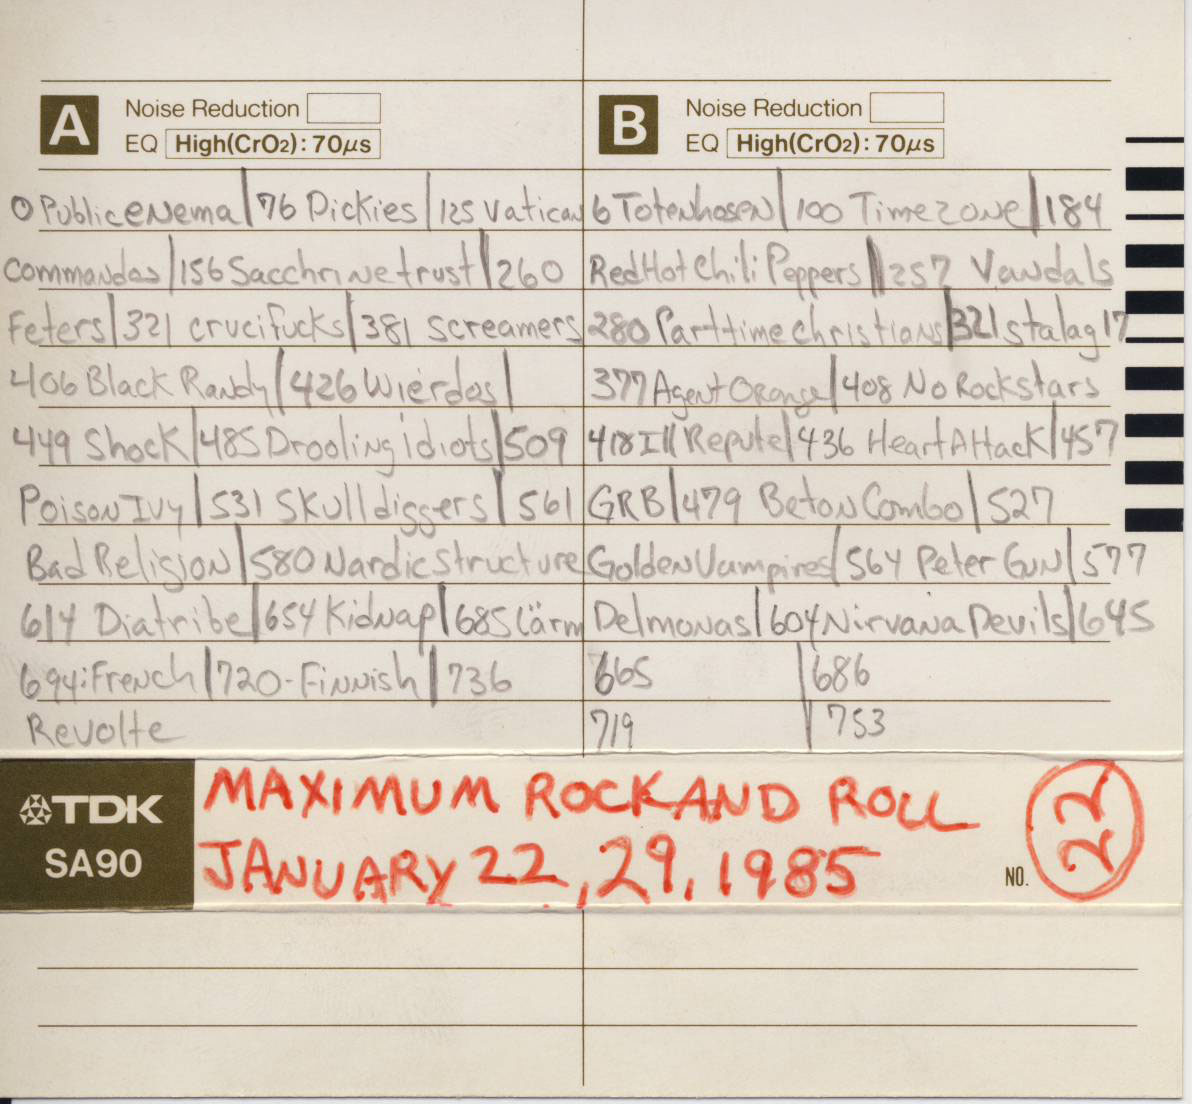 A Noise Reduction
EQ High(CrO2): 70µs
0 Public enema | 76 Dickies | 125 Vatican
Commandos | 156 Sacchrinetrust | 260
Feters | 321 crucifucks | 381 Screamers
406 Black Randy | 426 Wierdos |
449 Shock | 485 Drooling idiots | 509
Poison Ivy | 531 Skulldiggers | 561
Bad Religion | 580 Nardic Structure
614 Diatribe | 654 Kidnap | 685 Lärm
694: French | 720-Finnish | 736
Revolte
B Noise Reduction
EQ High(CrO2): 70µs
6 Totenhosen | 100 Timezone | 184
Red Hot Chili Peppers | 257 Vandals
280 Parttime christians | 321 stalag 17
377 Agent Orange | 408 No Rockstars
418 Ill Repute | 436 Heart Attack | 457
GRB | 479 Beton Combo | 527
Golden Vampires | 564 Peter Gun | 577
Delmonas | 604 Nirvana Devils | 645
665 | 686
719 | 753
TDK
SA90
MAXIMUM ROCK AND ROLL
JANUARY 22, 29, 1985
NO.